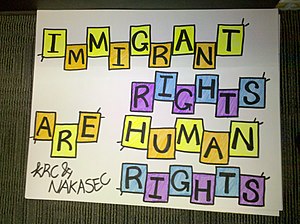 IMMIGRANT
RIGHTS
ARE HUMAN
KRC & NAKASEC RIGHTS